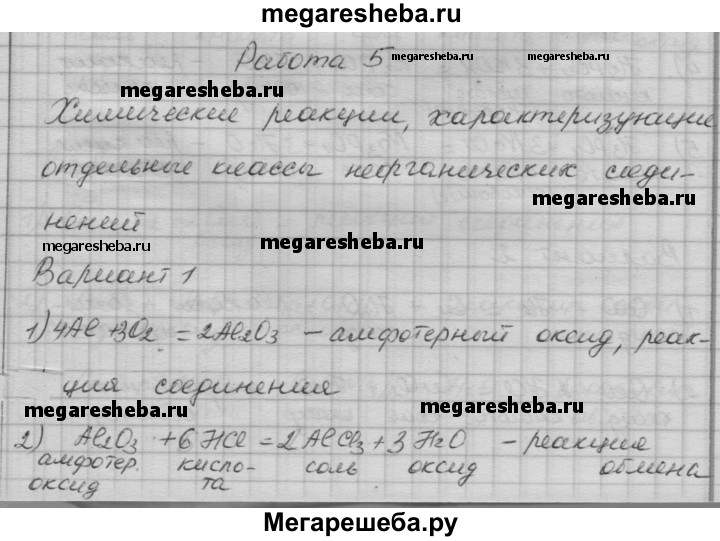 megaresheba.ru
Работа 5
megaresheba.ru megaresheba.ru
megaresheba.ru
Химические реакции, характеризующие
отдельные классы неорганических соеди-
megaresheba.ru
нений
megaresheba.ru megaresheba.ru
Вариант 1
1) 4Al + 3O2 = 2Al2O3 – амфотерный оксид, реак-
ция соединения
megaresheba.ru megaresheba.ru
2) Al2O3 + 6HCl = 2AlCl3 + 3H2O – реакция
амфотер. кисло- соль оксид обмена
оксид та
Мегарешеба.ру